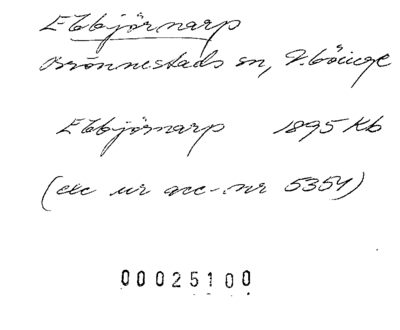 Ebbjörnarp
Brönnestads sn, V. Göinge
Ebbjörnarp 1895 Kb
(exc ur acc.-nr 5354)
00025100